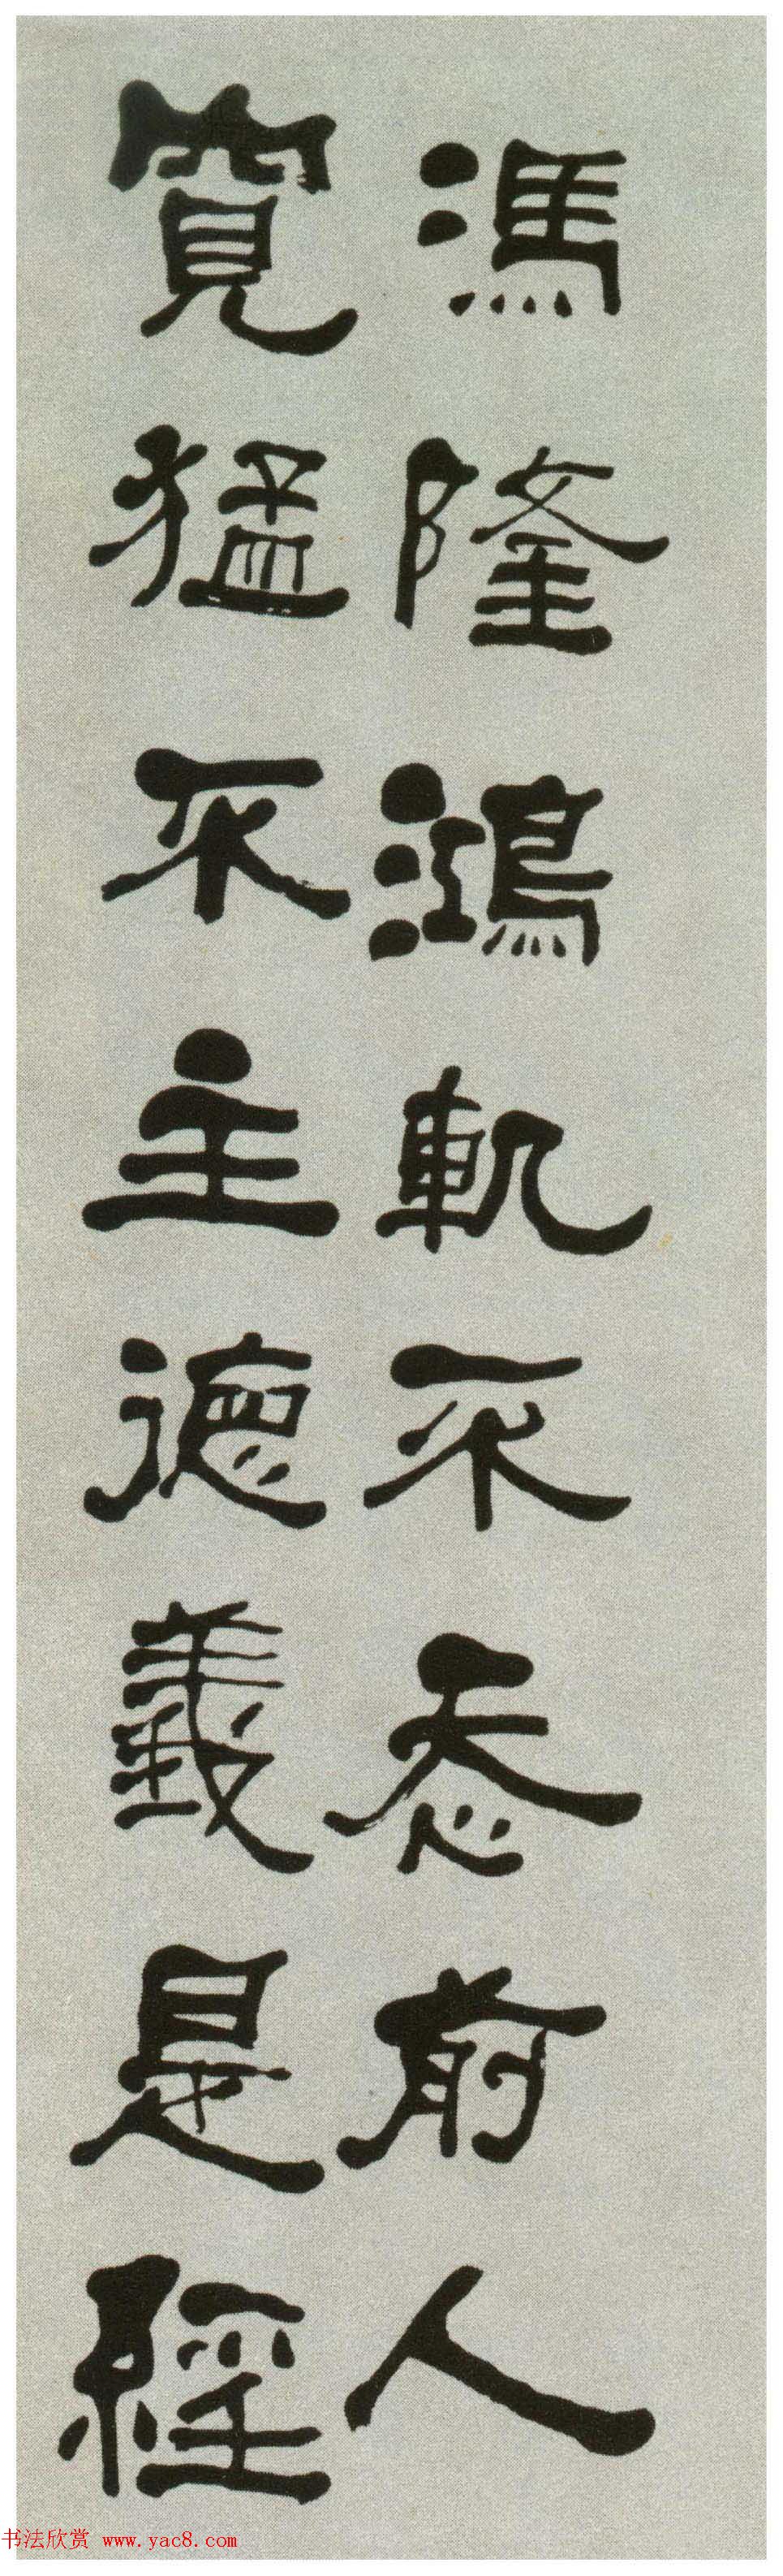 馮隆鴻軌不忝前人
寬猛不主德義是經
书法欣赏 www.yac8.com